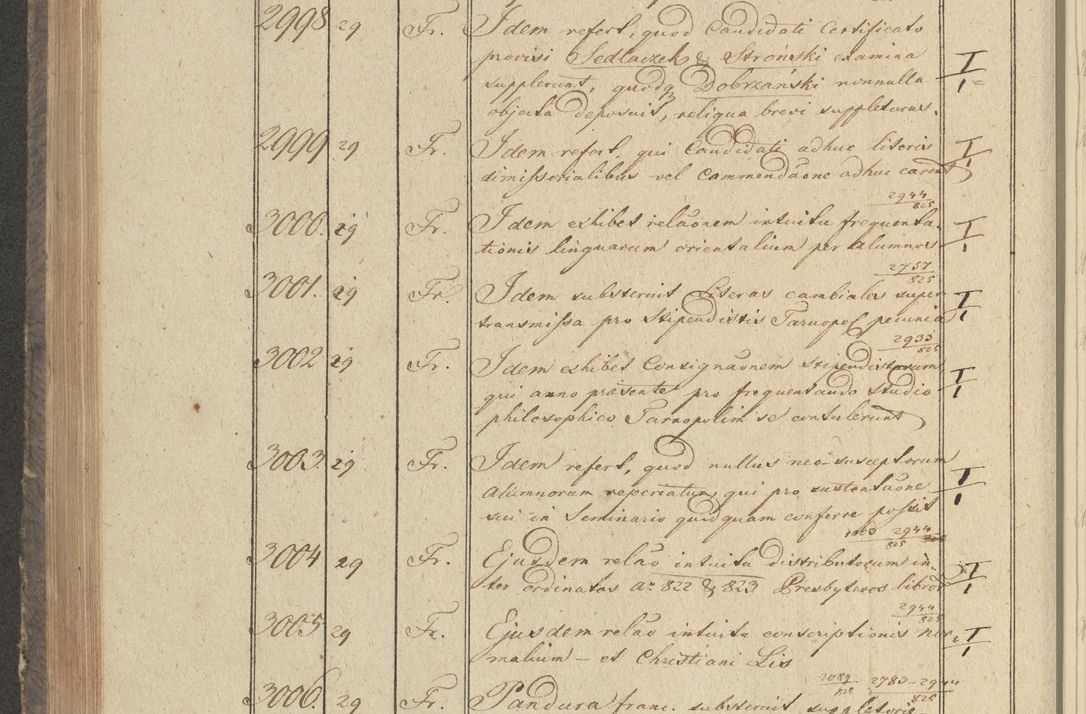 2998 29 Fr. Idem refert, quod Candidati Certificato
provisi Sedlaczek & Stroński examina I/1
supplerunt, quodq Dobrzański nonnulla
objecta deposuit, reliqua brevi suppleturus.
2999 29 Fr. Idem refert, qui Candidati adhuc literis I/1
dimissorialibus vel Commendaone adhuc carent
2944/825
3000. 29 Fr. Idem exhibet relaonem intuitu frequenta- I/1
tionis linguarum orientalium per alumnos
2757/825
3001. 29 Fr. Idem substernit Literas cambiales super I/1
transmissa pro Stipendistis Tarnopol pecunia
2933/825
3002 29 Fr. Idem exhibet Consignaonem Stipendistarum, I/1
qui anno præsente pro frequentando Studio
philosophico Tarnopolim se contulerunt
3003. 29 Fr. Idem refert, quod nullus neo-susceptorum
Alumnorum reperiatur, qui pro sustentaone I/1
sui in Seminario quidquam conferre possit
2944/825
3004 29 Fr. Ejusdem relao intuitu distributorum in- I/1
ter ordinatos ao 822 & 823 Presbyteros libror
2944/825
3005 29 Fr. Ejusdem relao intuitu conscriptionis nor- I/1
malium - et Christiani Lis
2089/825 2783-2944/825
3006. 29 Fr. Pandura franc. substernit suppletoria